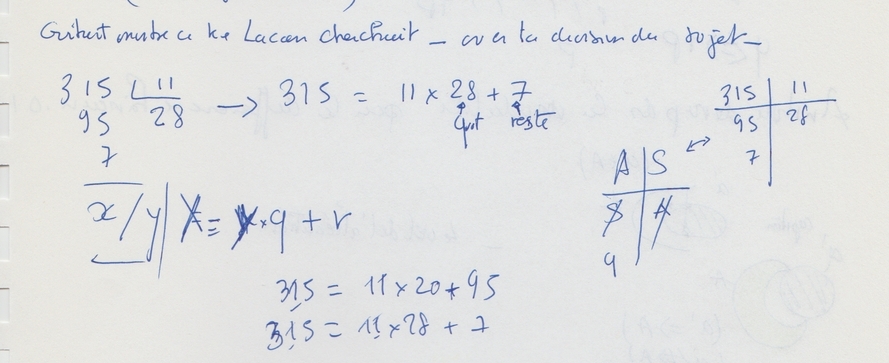 Guibert montre ce ke Lacan cherchait — avec la division du sujet —
315 | 11 → 315 = 11 × 28 + 7
95 28 quot reste
7
315 | 11
95 | 28
7
A | S
$ | A
q
x / y | X = Y × q + r
315 = 11 × 20 + 95
315 = 11 × 28 + 7